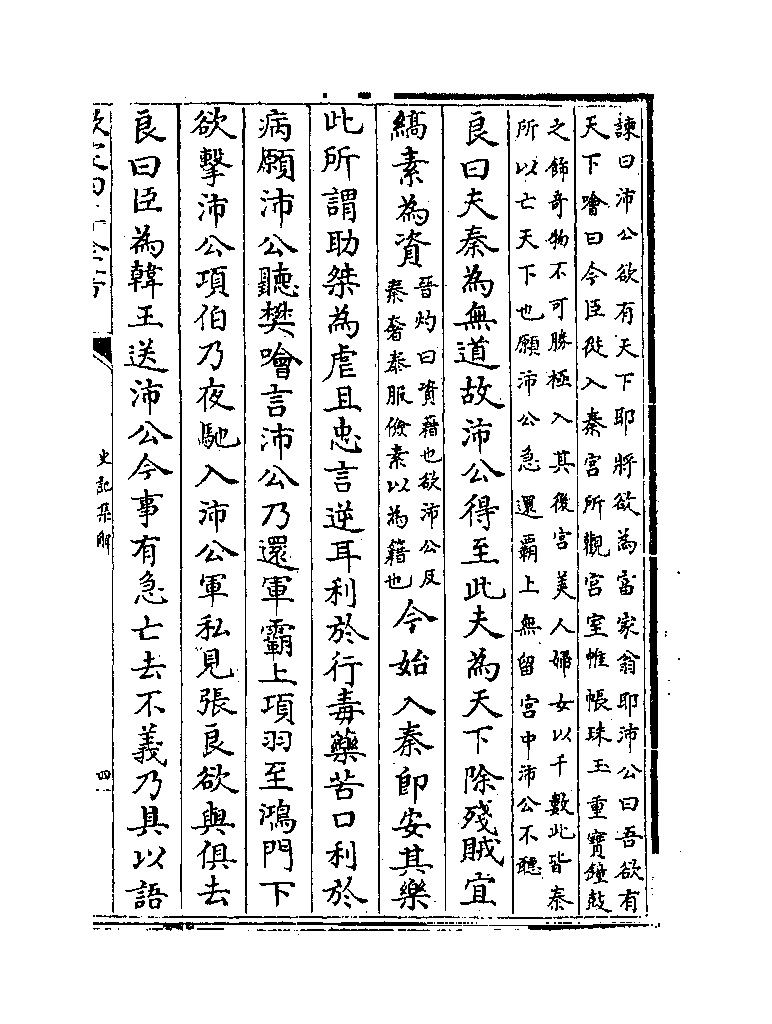 諫曰沛公欲有天下耶將欲為富家翁耶沛公曰吾欲有
天下噲曰今臣從入秦宮所觀宮室帷帳珠玉重寶鐘鼓
之飾奇物不可勝極入其後宮美人婦女以千數此皆秦
所以亡天下也願沛公急還霸上無留宮中沛公不聽
良曰夫秦為無道故沛公得至此夫為天下除殘賊宜
縞素為資
晉灼曰資藉也欲沛公反
秦奢泰服儉素以為籍也
今始入秦即安其樂
此所謂助桀為虐且忠言逆耳利於行毒藥苦口利於
病願沛公聽樊噲言沛公乃還軍霸上項羽至鴻門下
欲擊沛公項伯乃夜馳入沛公軍私見張良欲與俱去
良曰臣為韓王送沛公今事有急亡去不義乃具以語
史記集解
四